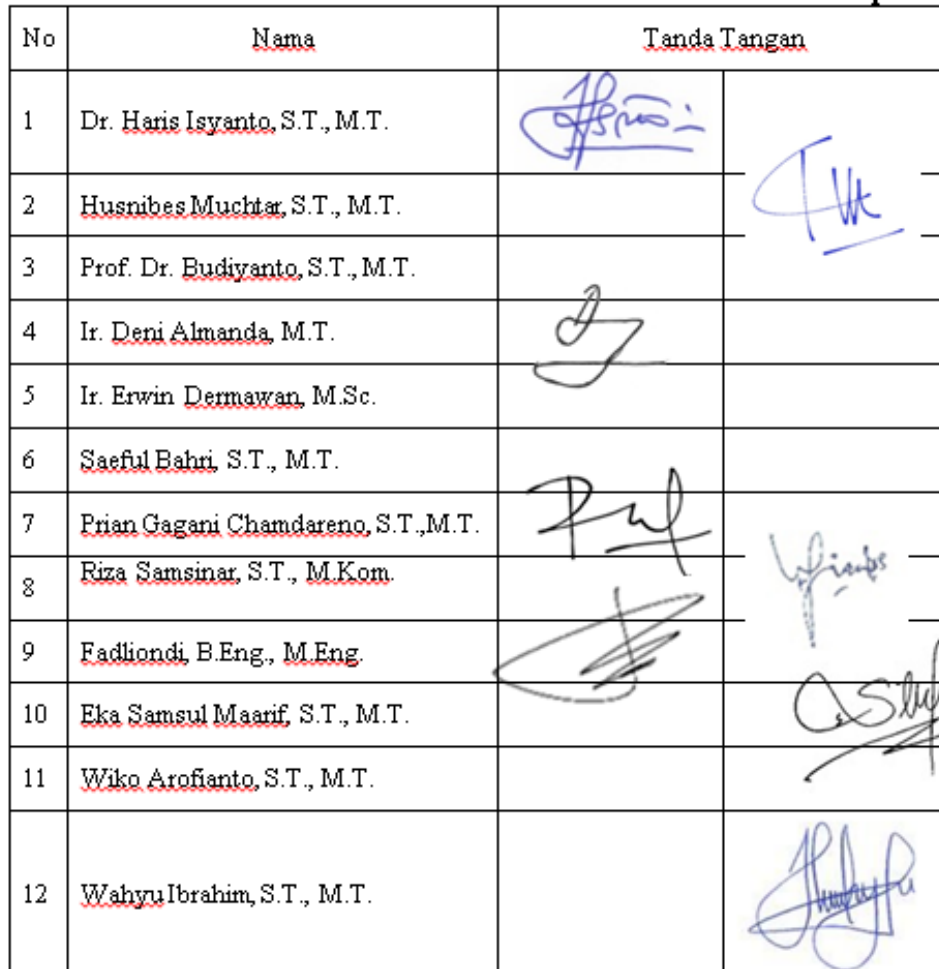 No Nama Tanda Tangan
1 Dr. Haris Isyanto, S.T., M.T.
2 Husnibes Muchtar, S.T., M.T.
3 Prof. Dr. Budiyanto, S.T., M.T.
4 Ir. Deni Almanda, M.T.
5 Ir. Erwin Dermawan, M.Sc.
6 Saeful Bahri, S.T., M.T.
7 Prian Gagani Chamdareno, S.T.,M.T.
8 Riza Samsinar, S.T., M.Kom.
9 Fadliondi, B.Eng., M.Eng.
10 Eka Samsul Maarif, S.T., M.T.
11 Wiko Arofianto, S.T., M.T.
12 Wahyu Ibrahim, S.T., M.T.